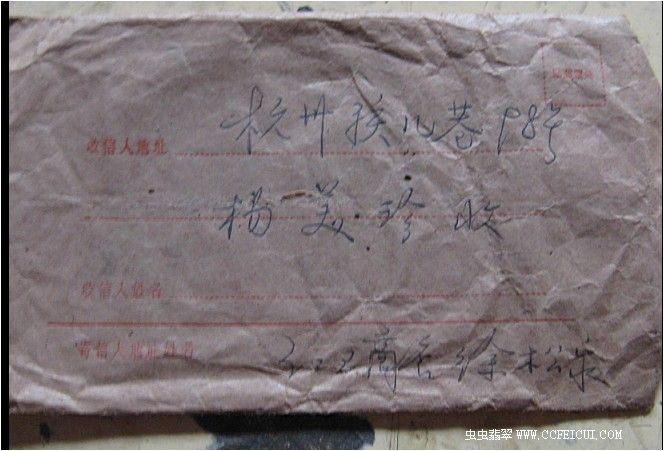 收信人地址 杭州孩儿巷98号
杨美珍 收
收信人姓名
寄信人地址姓名 徐松泉
虫虫翡翠 WWW.CCFEICUI.COM